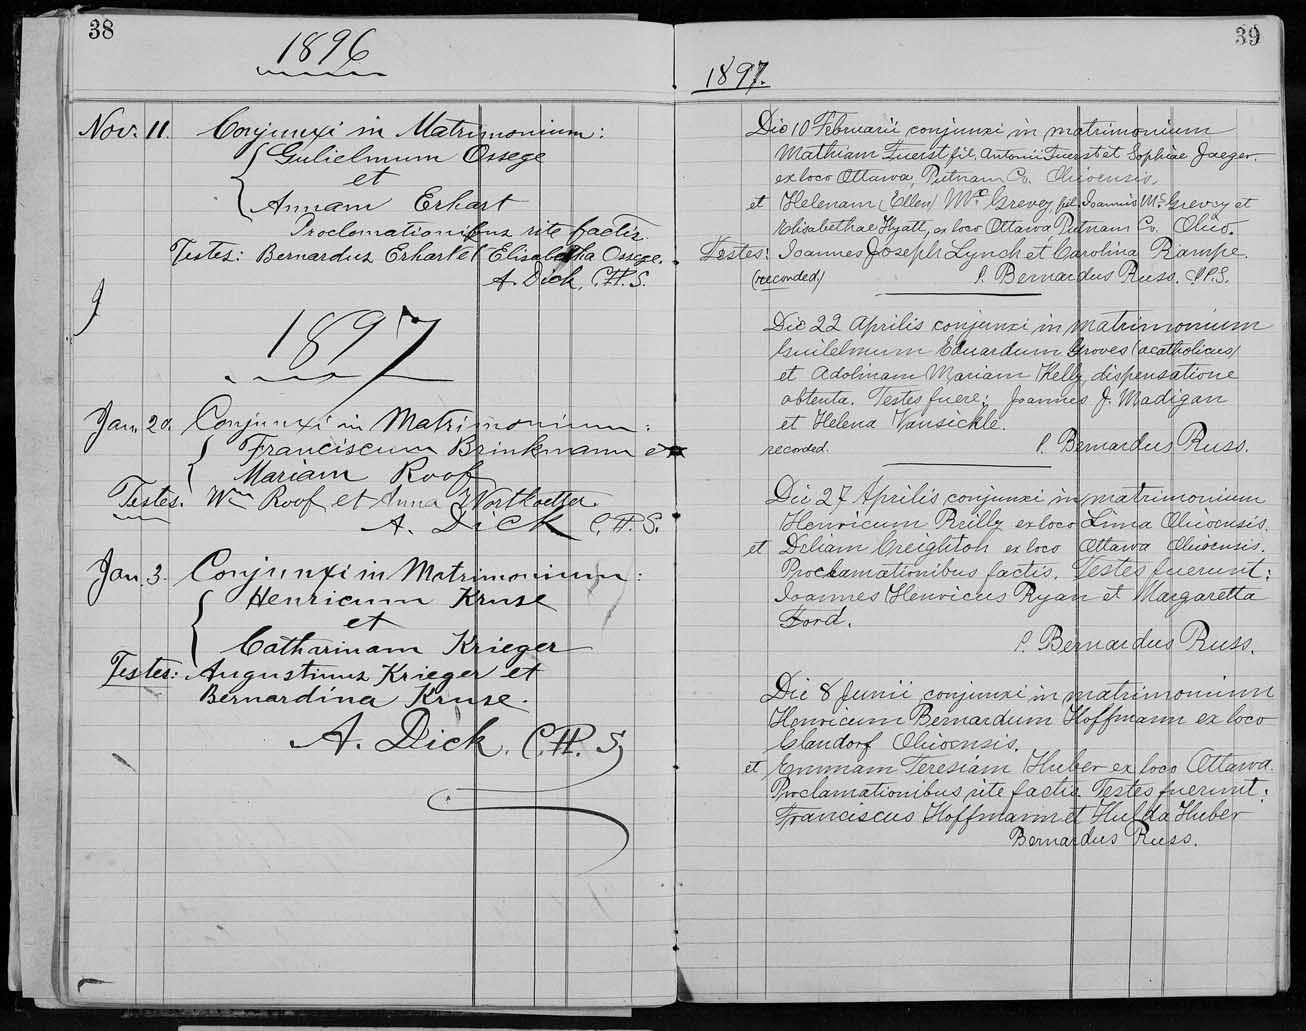 38
1896
Nov. 11. Conjunxi in Matrimonium:
Gulielmum Ossege
et
Annam Erhart
Proclamationibus rite factis.
Testes: Bernardus Erhart et Elisabetha Ossege.
A. Dick, C.PP.S.
1897
Jan. 20. Conjunxi in Matrimonium:
Franciscum Brinkmann et
Mariam Roof
Testes. Wm Roof et Anna
A. Dick C.PP.S.
Jan. 3. Conjunxi in Matrimonium:
Henricum Kruse
et
Catharinam Krieger
Testes: Augustinus Krieger et
Bernardina Kruse.
A. Dick. C.PP.S
39
1897.
Die 10 Februarii conjunxi in matrimonium
Mathiam Fuerst fil. Antonii Fuerst et Sophiae Jaeger.
ex loco Ottawa, Putnam Co. Ohioensis.
et Helenam (Ellen) Mc Grevey fil. Joannis Mc Grevey et
Elisabethae Hyatt, ex loco Ottawa Putnam Co. Ohio.
Testes: Joannes Joseph Lynch et Carolina Rampe.
(recorded) P. Bernardus Russ. C.PP.S.
Die 22 Aprilis conjunxi in matrimonium
Guilelmum Eduardum Groves (acatholicus)
et Adolinam Mariam Kelly, dispensatione
obtenta. Testes fuere: Joannes J. Madigan
et Helena Vansickle.
recorded. P. Bernardus Russ.
Die 27 Aprilis conjunxi in matrimonium
Henricum Reilly ex loco Lima Ohioensis.
et Deliam Creighton ex loco Ottawa Ohioensis.
Proclamationibus factis. Testes fuerunt:
Joannes Henricus Ryan et Margaretta
Ford.
P. Bernardus Russ.
Die 8 Junii conjunxi in matrimonium
Henricum Bernardum Hoffmann ex loco
Glandorf Ohioensis.
et Emmam Teresiam Huber ex loco Ottawa.
Proclamationibus rite factis Testes fuerunt:
Franciscus Hoffmann et Hulda Huber
Bernardus Russ.